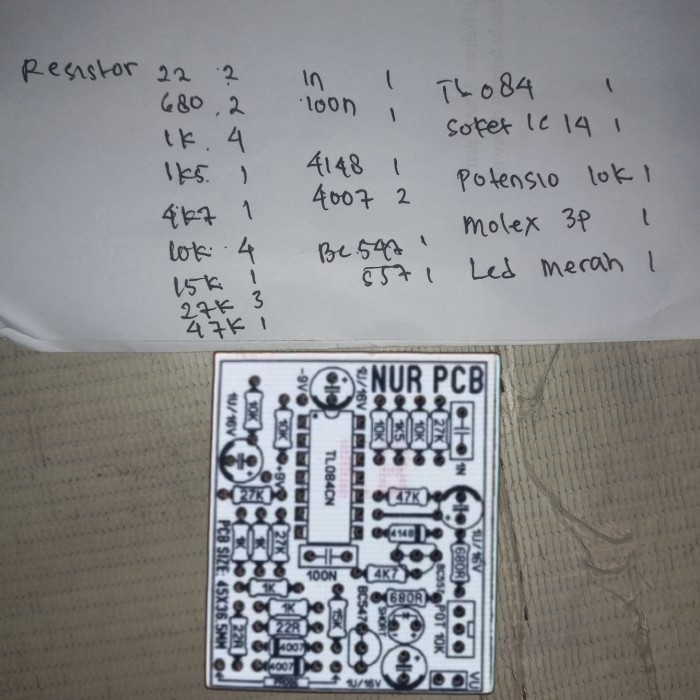 Resistor 22 2
680 2
1K 4
1K5 1
4K7 1
10K 4
15K 1
27K 3
47K 1
1n 1
100n 1
4148 1
4007 2
BC 547 1
557 1
TL 084 1
Soket IC 14 1
Potensio 10K 1
Molex 3P 1
Led merah 1
NUR PCB
-9V
1U/16V
1U/16V
10K
10K
10K
1K5
10K
27K
1N
TL084CN
+9V
27K
47K
1U/16V
4148
1K
1K
27K
100N
4K7
BC557
680R
PCB SIZE: 45X36.5MM
1K
1K
22R
22R
4007
4007
15K
BC547
680R
SHORT
POT 10K
1U/16V
VU